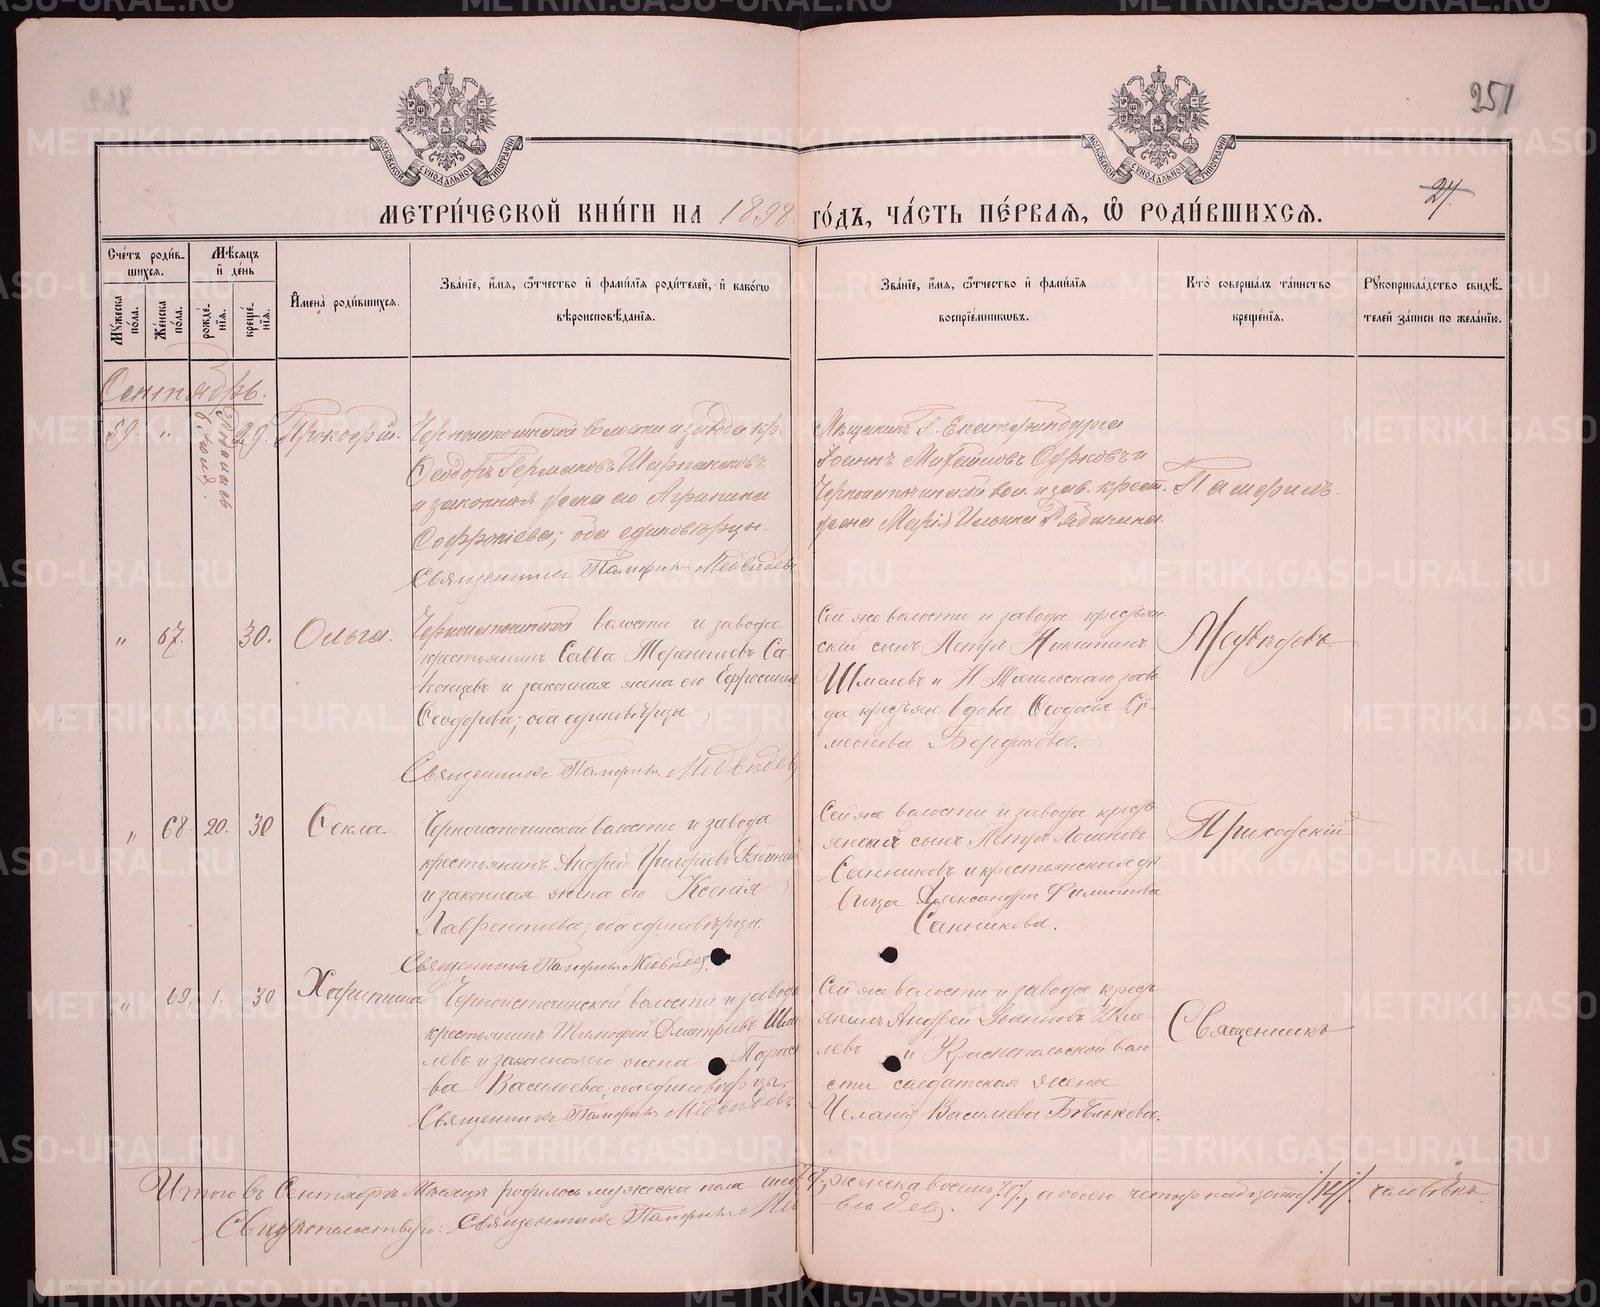 251
24.
МОСКОВСКОЙ СУНОДАЛЬНОЙ ТИПОГРАФИИ
МОСКОВСКОЙ СУНОДАЛЬНОЙ ТИПОГРАФИИ
МЕТРИ́ЧЕСКОЙ КНИ́ГИ НА 1898 ГО́ДЪ, ЧА́СТЬ ПЕ́РВАЯ, Ѡ҆ РОДИ́ВШИХСЯ.
Сче́тъ роди́вшихся.
Му́жеска по́ла.
Же́нска по́ла.
Мѣ́сяцъ и҆ де́нь
рожде́нїя.
креще́нїя.
И҆мена̀ роди́вшихся.
Зва́нїе, и҆́мя, ѻ҆́тчество и҆ фами́лїя роди́телей, и҆ како́гѡ
вѣроисповѣ́данїя.
Зва́нїе, и҆́мя, ѻ҆́тчество и҆ фами́лїя
воспрїе́мникѡвъ.
Кто̀ соверша́лъ та́инство
креще́нїя.
Рꙋкоприкла́дство свидѣ́-
телей за́писи по жела́нїю.
Сентябрь.
59. " 29. Прокопій.
Черноисточинской волости и завода кр.
Ѳеодоръ Германовъ
и законная жена его Агрипина
Софроніева; оба единовѣрцы.
Священникъ Памфилъ Медвѣдевъ
Мѣщанинъ Г. Екатеринбурга
Іоаннъ
Черноисточинской вол. и зав. крест.
жена Марія Рябинина.
Памфилъ
" 67. 30. Ольга.
Черноисточинской волости и завода
крестьянинъ Савва Терентьевъ
и законная жена его Ефросинья
Ѳеодорова; оба единовѣрцы
Священникъ Памфилъ Медвѣдевъ
Сей же волости и завода крестьян-
скій сынъ Петръ Никитинъ
Шмелевъ и Н. Тагильскаго заво-
да крестьян. вдова Ѳеодосія Си-
меонова Бердникова.
Медвѣдевъ
" 68. 20. 30 Ѳекла
Черноисточинской волости и завода
крестьянинъ Андрей Григоріевъ Рябинин
и законная жена его Ксенія
Лаврентьева; оба единовѣрцы.
Священникъ Памфилъ Медвѣдев.
Сей же волости и завода кресть-
янскій сынъ Петръ
Санниковъ и крестьянская дѣ-
вица Александра Филиппова
Санникова.
Приходскій
" 69. 1. 30 Харитина
Черноисточинской волости и завода
крестьянинъ Тимофей Дмитріевъ Шме-
левъ и законная его жена Параске-
ва Васильева; оба единовѣрцы.
Священникъ Памфилъ Медвѣдевъ
Сей же волости и завода кресть-
янинъ Андрей Іоанновъ Шме-
левъ и Краснопольской воло-
сти солдатская жена
Меланія Васильева Бѣлькова.
Священникъ
Итого въ Сентябрѣ Мѣсяцѣ родилось мужеска пола шесть /6/, женска восемь /8/, а обоего четырнадцать /14/. человѣкъ
Свидѣтельствую: Священникъ Памфилъ Медвѣдев.
METRIKI.GASO-URAL.RU